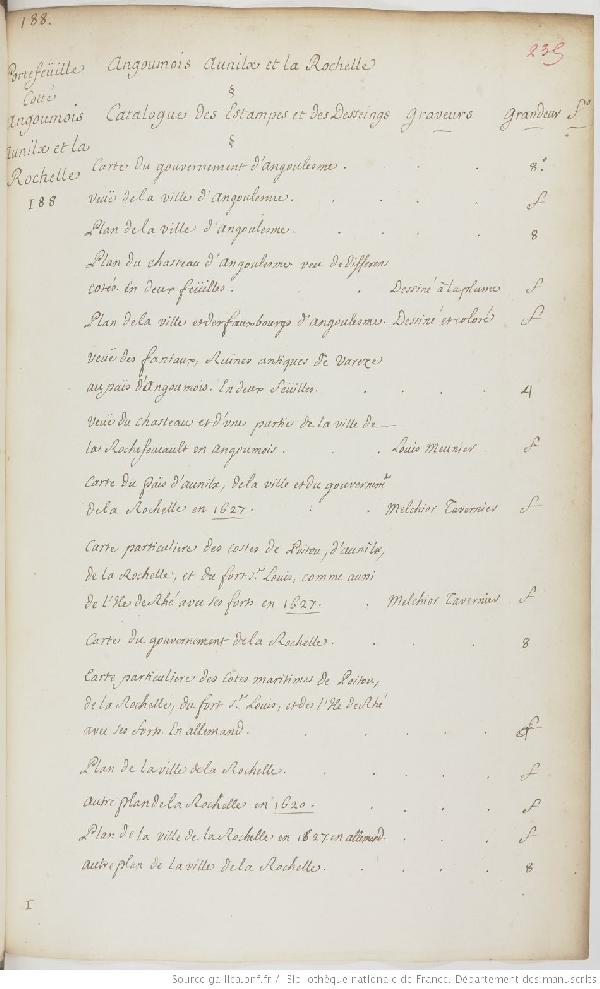 188.
235
Portefeüille
Cotté
Angoumois
Aunilx et la
Rochelle
188
Angoumois Aunilx et la Rochelle
§
Catalogue des Estampes et des Desseings Graveurs Grandeur fo
§
Carte du gouvernement d'Angoulesme . . . . 8.o
Veuë de la ville d'Angoulesme . . . . . f
Plan de la ville d'Angoulesme . . . . . 8
Plan du chasteau d'Angoulesme veu de differens
costés. En deux feüilles . . Dessiné à la plume f
Plan de la ville et des fauxbourgs d'Angoulesme. Dessiné et coloré f
Veuë des Ruines antiques de Vareze
au païs d'Angoumois. En deux feüilles . . . . 4
Veuë du chasteau et d'une partie de la ville de
la Rochefoucault en Angoumois . . Louis Meunier f
Carte du païs d'aunilx, de la ville et du gouvernemt
de la Rochelle en 1627. . . Melchior Tavernier f
Carte particuliere des costes de Poitou, d'aunilx,
de la Rochelle, et du fort St. Louis, comme aussi
de l'Isle de Rhé avec ses forts en 1627. . Melchior Tavernier f
Carte du gouvernement de la Rochelle . . . . 8
Carte particuliere des côtes maritimes de Poitou,
de la Rochelle, du fort St. Louis, et des l'Isle de Rhé
avec ses forts. En allemand . . . . . f
Plan de la ville de la Rochelle . . . . f
Autre plan de la Rochelle en 1620. . . . f
Plan de la ville de la Rochelle en 1627 en allemand . . . f
Autre plan de la ville de la Rochelle . . . . 8
I
Source gallica.bnf.fr / Bibliothèque nationale de France. Département des manuscrits